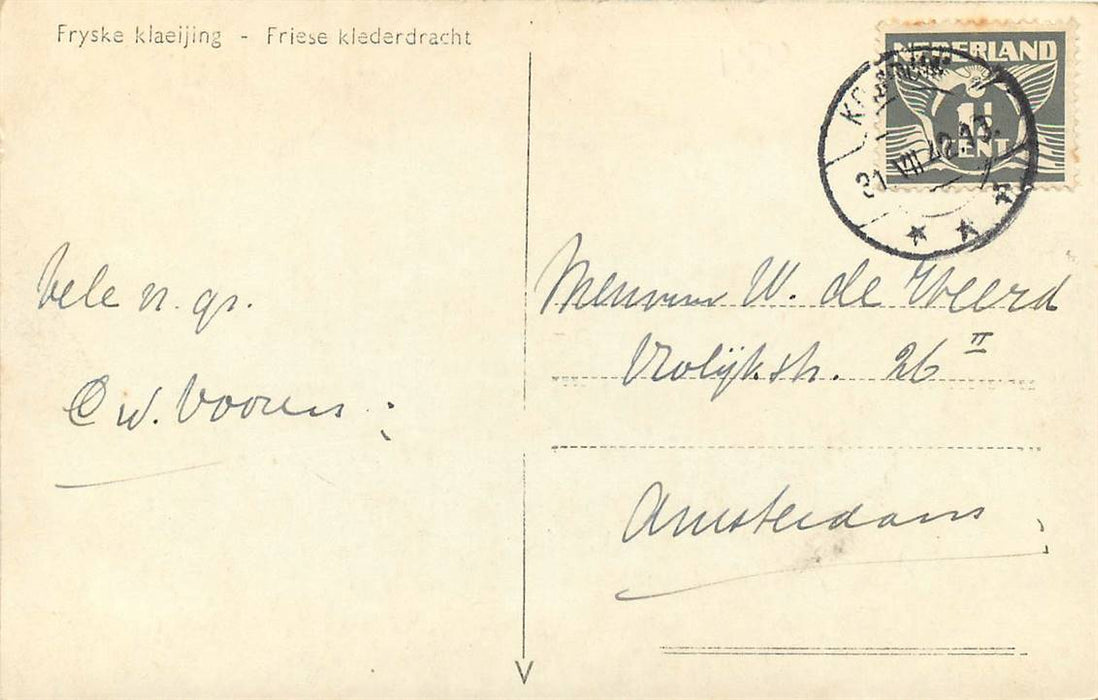 Fryske klaeijing - Friese klederdracht
NEDERLAND
1½
CENT
31 VII 42.13.
Vele n. gr.
C W. Vooren
Mevrouw W. de Weerd
Vrolijkstr. 26 II
Amsterdam